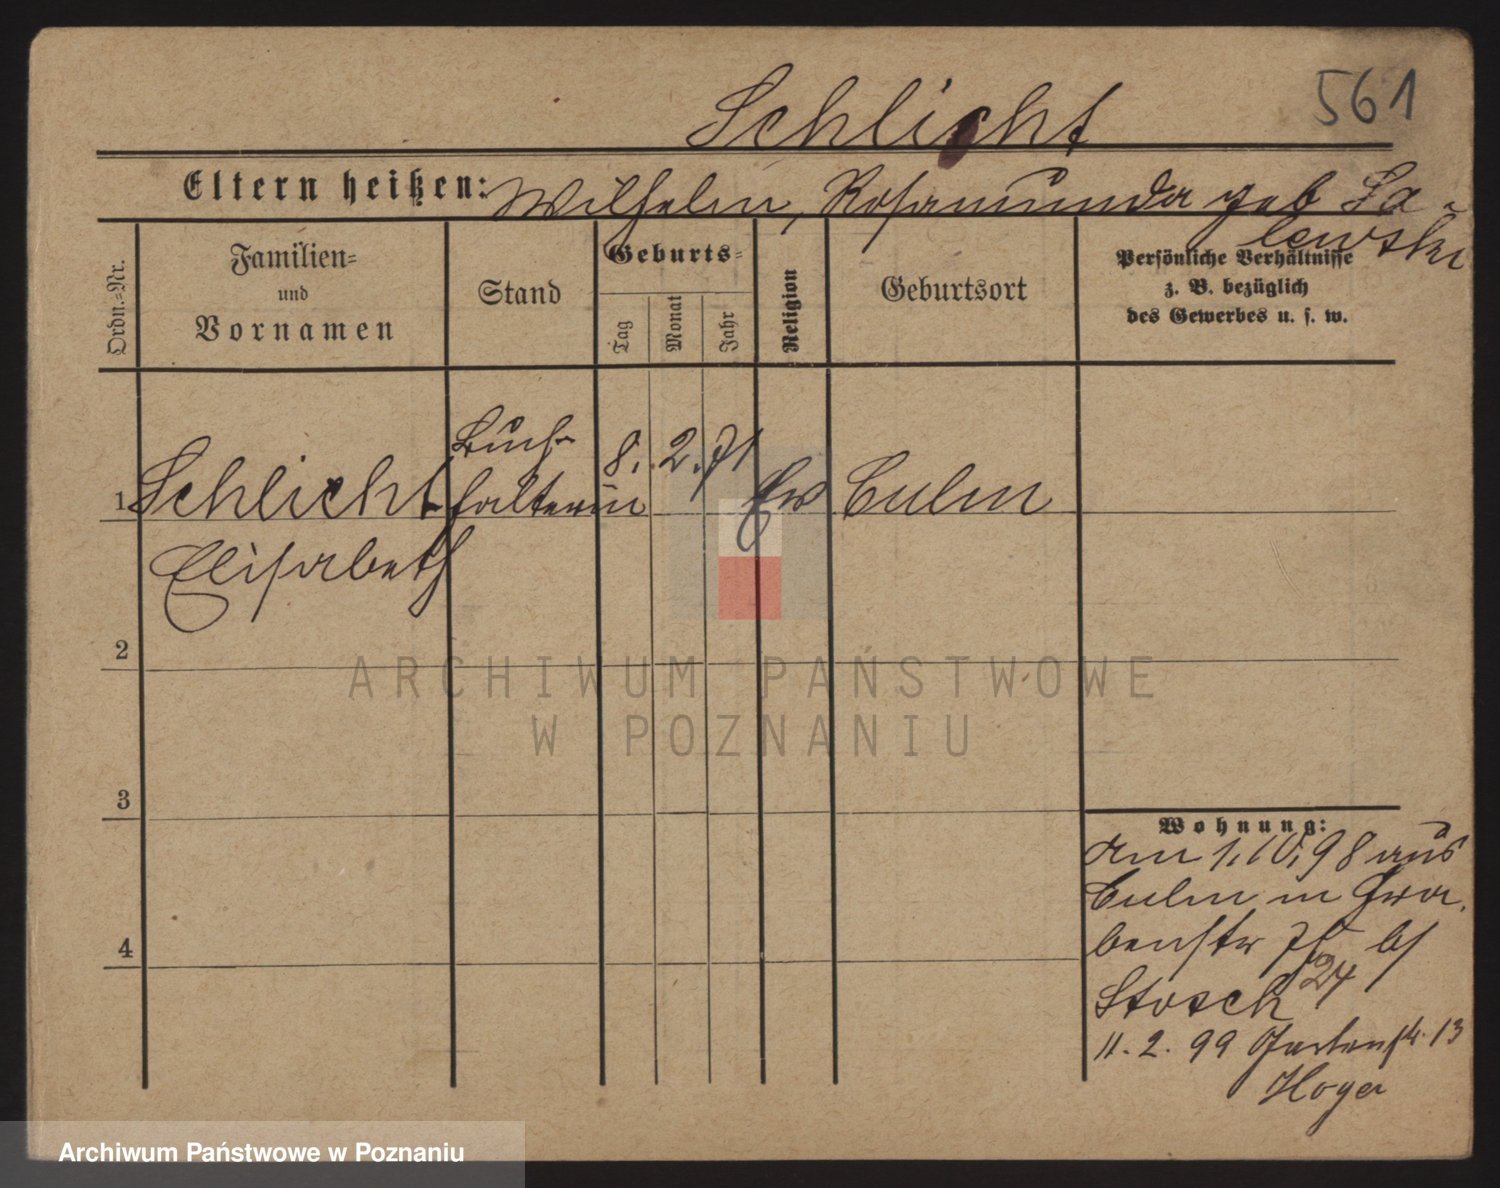 561
Schlicht
Eltern heißen: Wilhelm, Rosamunda geb Sa-
lewski
Ordn.=Nr.
Familien=
und
Vornamen
Stand
Geburts=
Tag
Monat
Jahr
Religion
Geburtsort
Persönliche Verhältnisse
z. B. bezüglich
des Gewerbes u. s. w.
1 Schlicht Buch- 8. 2. 71 Ev Culm
halterin
Elisabeth
2
ARCHIWUM PAŃSTWOWE
W POZNANIU
3
4
Wohnung:
am 1.10.98 aus
Culm in Gra.
benstr b/
24
Stosch
11. 2. 99 Gartenstr. 13
Hoyer
Archiwum Państwowe w Poznaniu